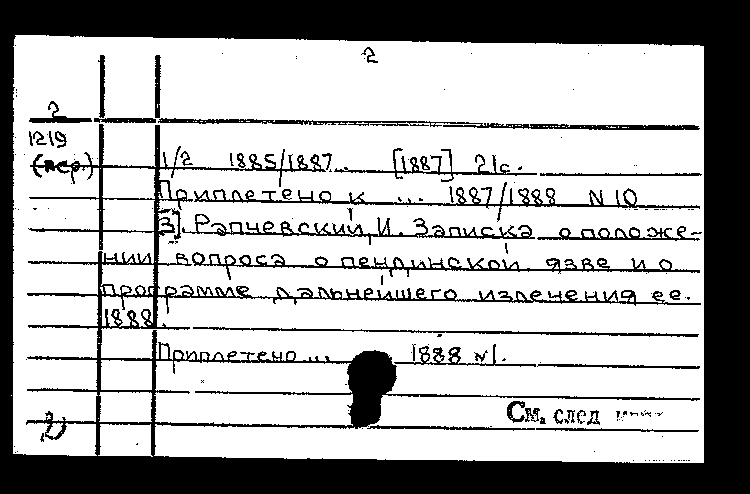 2
2
1219
(пер.)
1/2 1885/1887.. [1887] 21с.
Приплетено к ... 1887/1888 N 10
3]. Рапчевский, И. Записка о положе-
нии вопроса о пендинской язве и о
программе дальнейшего излечения ее.
1888.
Приплетено... 1888 N1.
См. след